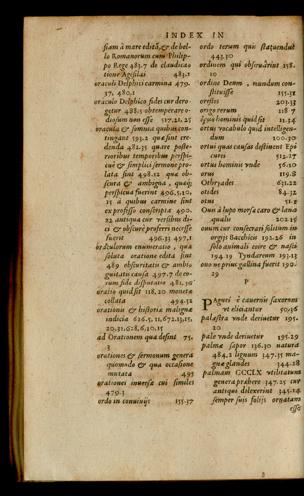 INDEX IN
siam à mare editã, & de bel-
lo Romanorum cum Philip-
po Rege 483.7 de claudica
tione Agesilai 483.1
oraculi Delphici carmina 479.
37, 480.1
oraculo Delphico fides cur dero-
getur 488.3 obtemperare o-
diosum non esse 517.21.25
oracula & somnia quibus con-
tingant 593.2 quæ sint cre-
denda 482.35 quare poste-
rioribus temporibus perspi-
cuè & simplici sermone pro-
lata sint 498.12 quæ ob-
scura & ambigua, quæq;
perspicua fuerint 406.5,10.
15 à quibus carmine sint
ex professo conscripta 490.
12, antiqua cur versibus di-
ci & obscurè proferri necesse
fuerit 496.33 497.1
oraculorum enumeratio, quæ
soluta oratione edita sint
489 obscuritatis & ambi-
guitatis causa 497.7 de eo-
rum fide disputatio 481.30
oratio quid sit 118.20 moneta
collata 494.32
orationis & historiæ malignæ
indicia 626.5.11,672.13,15,
20,31.628,6.10,15
ad Orationem qua desint 75.
3
orationes & sermonum genera
quomodo & qua occasione
mutata 495
orationes inuersa cui similes
479.3
ordo in conuiuijs 155.37
ordo rerum quis statuendus
443.30
ordinem qui obseruârint 258.
10
ordine Deum, mundum con-
stituisse 155.31
orestes 203.33
origo rerum 118.7
ortus hominis quid sit 11.34
ortus vocabulo quid intelligen-
dum 100.30
ortus quas causas destinent Epi
curei 512.27
ortus hominis vnde 56.10
orus 119.8
Othryades 631.22
otides 84.32
otus 51.2
Ouis à lupo morsæ caro & lana
qualis 202.25
ouum cur consecrati solitum in
orgijs Bacchicis 192.26 in
solo animali coire & nasci
194.19 Tyndareum 193.13
ouo ne prius gallina fuerit 190.
29
P
Paguri è cauernis saxorum
vt eliciantur 50,36
palæstra vnde deriuetur 195.
20
pale vnde deriuetur 195.29
palmæ sapor 136.30 natura
484.2 lignum 347.35 ma-
gnæ glandes 344.28
palmam CCCLX vtilitatum
genera præbere 347.25 cur
antiqui dilexerint 345.14
semper suis folijs ornatam
esse